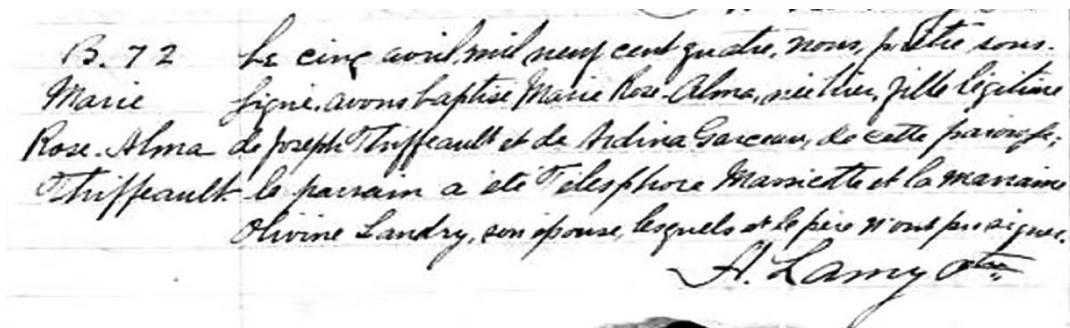 B. 72 Le cinq avril mil neuf cent quatre, nous, prêtre sous-
Marie signé, avons baptisé Marie Rose-Alma, née hier, fille légitime
Rose-Alma de Joseph Thiffeault et de Ardina Garceau, de cette paroisse;
Thiffeault le parrain a été Télesphore Marcotte et la marraine
Olivine Landry, son épouse, lesquels et le père n'ont pu signer.
A. Lamy Ptre